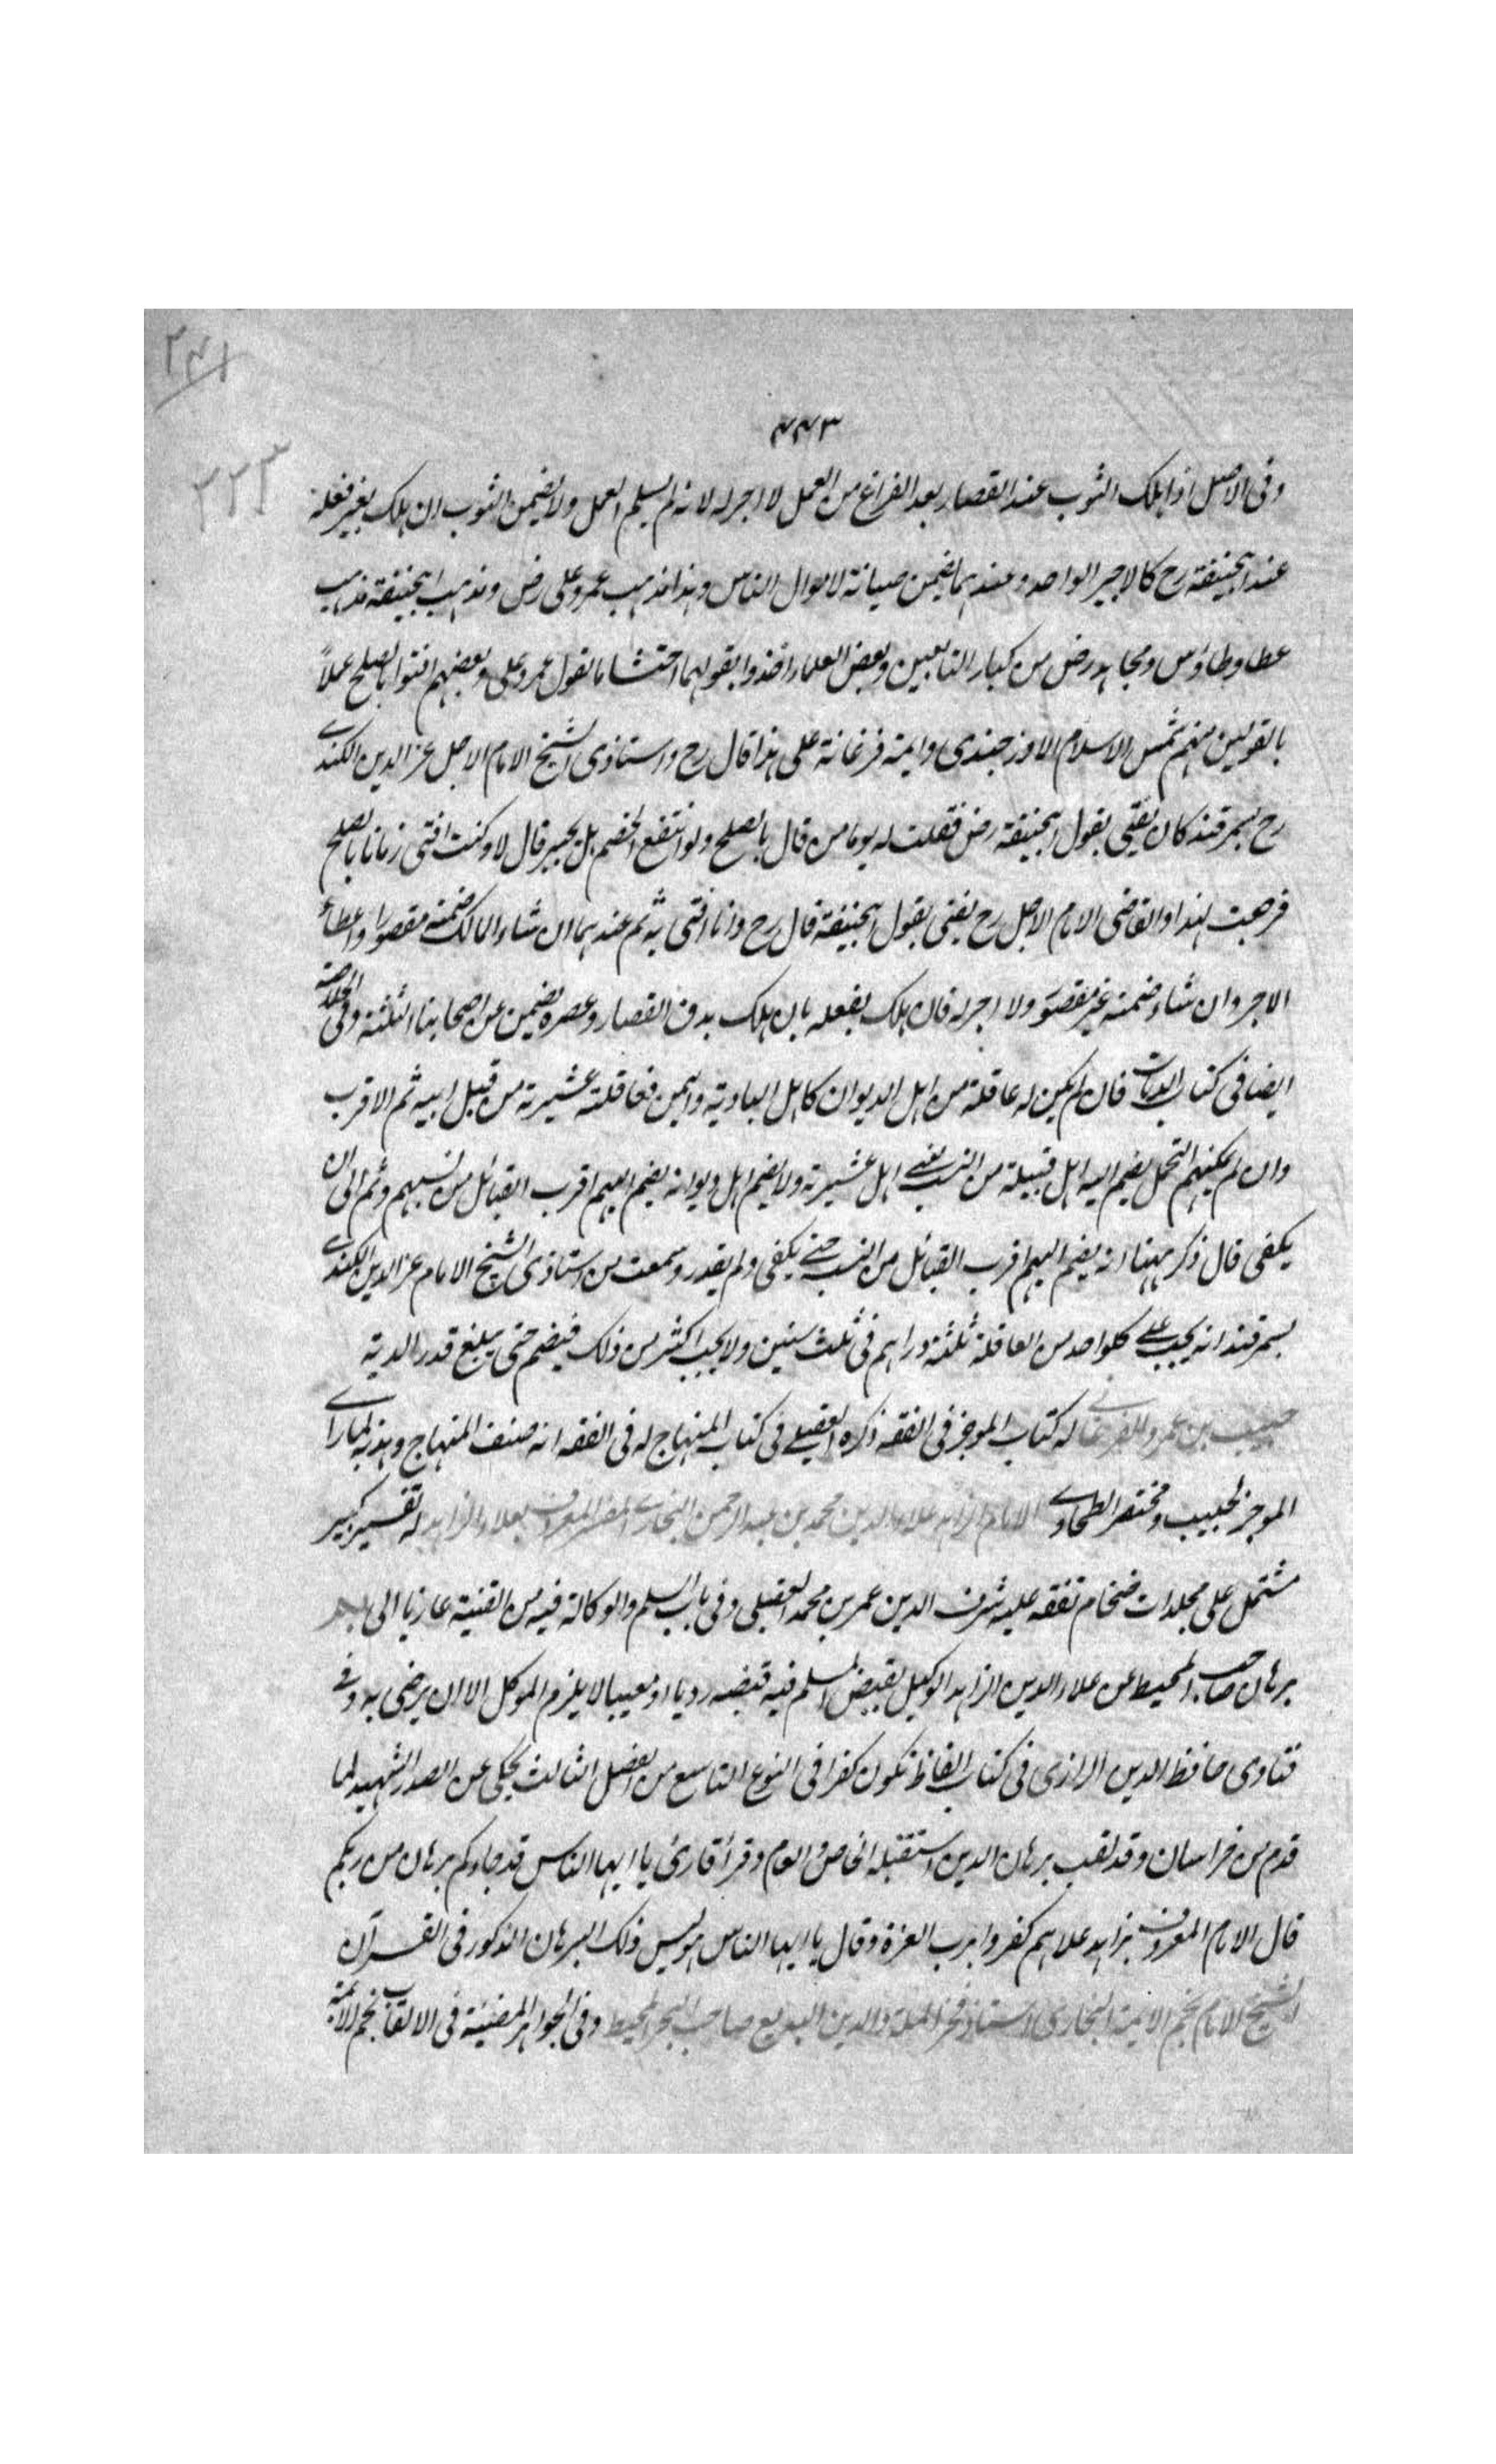 ٢٤١
٤٤٣
٢٢٣
وفى الاصل اذا هلك الثوب عند القصار بعد الفراغ من العمل لا اجر له لانه لم يسلم العمل ولا يضمن الثوب ان هلك بغير فعله
عند ابيحنيفة رح كالاجير الواحد وعندهما يضمن صيانة لاموال الناس وهذا مذهب عمر وعلى رض ومذهب ابيحنيفة مذهب
عطا وطاوس ومجاهد رض من كبار التابعين وبعض العلماء اخذوا بقولهما احتشاما بقول عمر وعلى وبعضهم افتوا بالصلح عملاً
بالقولين منهم شمس الاسلام الاوزجندى وايمة فرغانة على هذا قال رح واستاذى الشيخ الامام الاجل عز الدين الكندى
رح بسمرقند كان يفتى بقول ابيحنيفة رض فقلت له يوما من قال بالصلح ولو انتفع الخصم بل يجبر قال لا وكنت افتى زمانا بالصلح
فرجعت لهذا والقاضى الامام الاجل رح يفتى بقول ابيحنيفة قال رح وانا افتى به ثم عندهما ان شاء المالك ضمنه مقصورا واعطاه
الاجر وان شاء ضمنه غير مقصور ولا اجر له فان هلك بفعله بان هلك بدق القصار وعصره يضمن عن اصحابنا الثلثة وفى الخلاصة
ايضا فى كتاب الديات فان لم يكن له عاقلة من اهل الديوان كاهل البادية واليمن فعاقلته عشيرته من قبل ابيه ثم الاقرب
وان لم يمكنهم التحمل يضم اليه اهل قبيلة من النسب يعنى اهل عشيرته ولا يضم اهل ديوانه يضم اليهم اقرب القبائل من نسبهم وثم الى ان
يكفى قال ذكر ههنا انه يضم اليهم اقرب القبائل من النسب حتى يكفى ولم يقدر وسمعت من استاذى الشيخ الامام عز الدين الكندى
بسمرقند انه يجب على كلواحد من العاقلة ثلثة دراهم فى ثلث سنين ولا يجب اكثر من ذلك فيضم حتى يبلغ قدر الدية
حبيب بن عمر والفرغانى له كتاب الموجز فى الفقه ذكره العقيلى فى كتاب المنهاج له فى الفقه انه صنف المنهاج وهذبه لما راى
الموجز لحبيب ومختصر الطحاوى الامام الزاهد علاء الدين محمد بن عبد الرحمن البخارى المفسر المعروف بعلاء الزاهد له تفسير كبير
مشتمل على مجلدات ضخام تفقه عليه شرف الدين عمر بن محمد العقيلى وفى باب السلم والوكالة فيه من القنية عازيا الى
برهان صاحب المحيط عن علاء الدين الزاهد الوكيل بقبض المسلم فيه قبضه رديا او معيبا لا يلزم الموكل الا ان يرضى به وفى
فتاوى حافظ الدين الرازى فى كتاب الفاظ تكون كفرا فى النوع التاسع من الفصل الثالث يحكى عن الصدر الشهيد لما
قدم من خراسان وقد لقب برهان الدين استقبله الخاص والعام وقرأ قارئ يا ايها الناس قد جاءكم برهان من ربكم
قال الامام المعروف بزاهد علاهم كفروا برب العزة وقال يا ايها الناس هو ليس ذلك البرهان المذكور فى القرآن
الشيخ الامام نجم الايمة البخارى استاذ فخر الملة والدين البديع صاحب البحر المحيط وفى الجواهر المضيئة فى الالقاب نجم الايمة